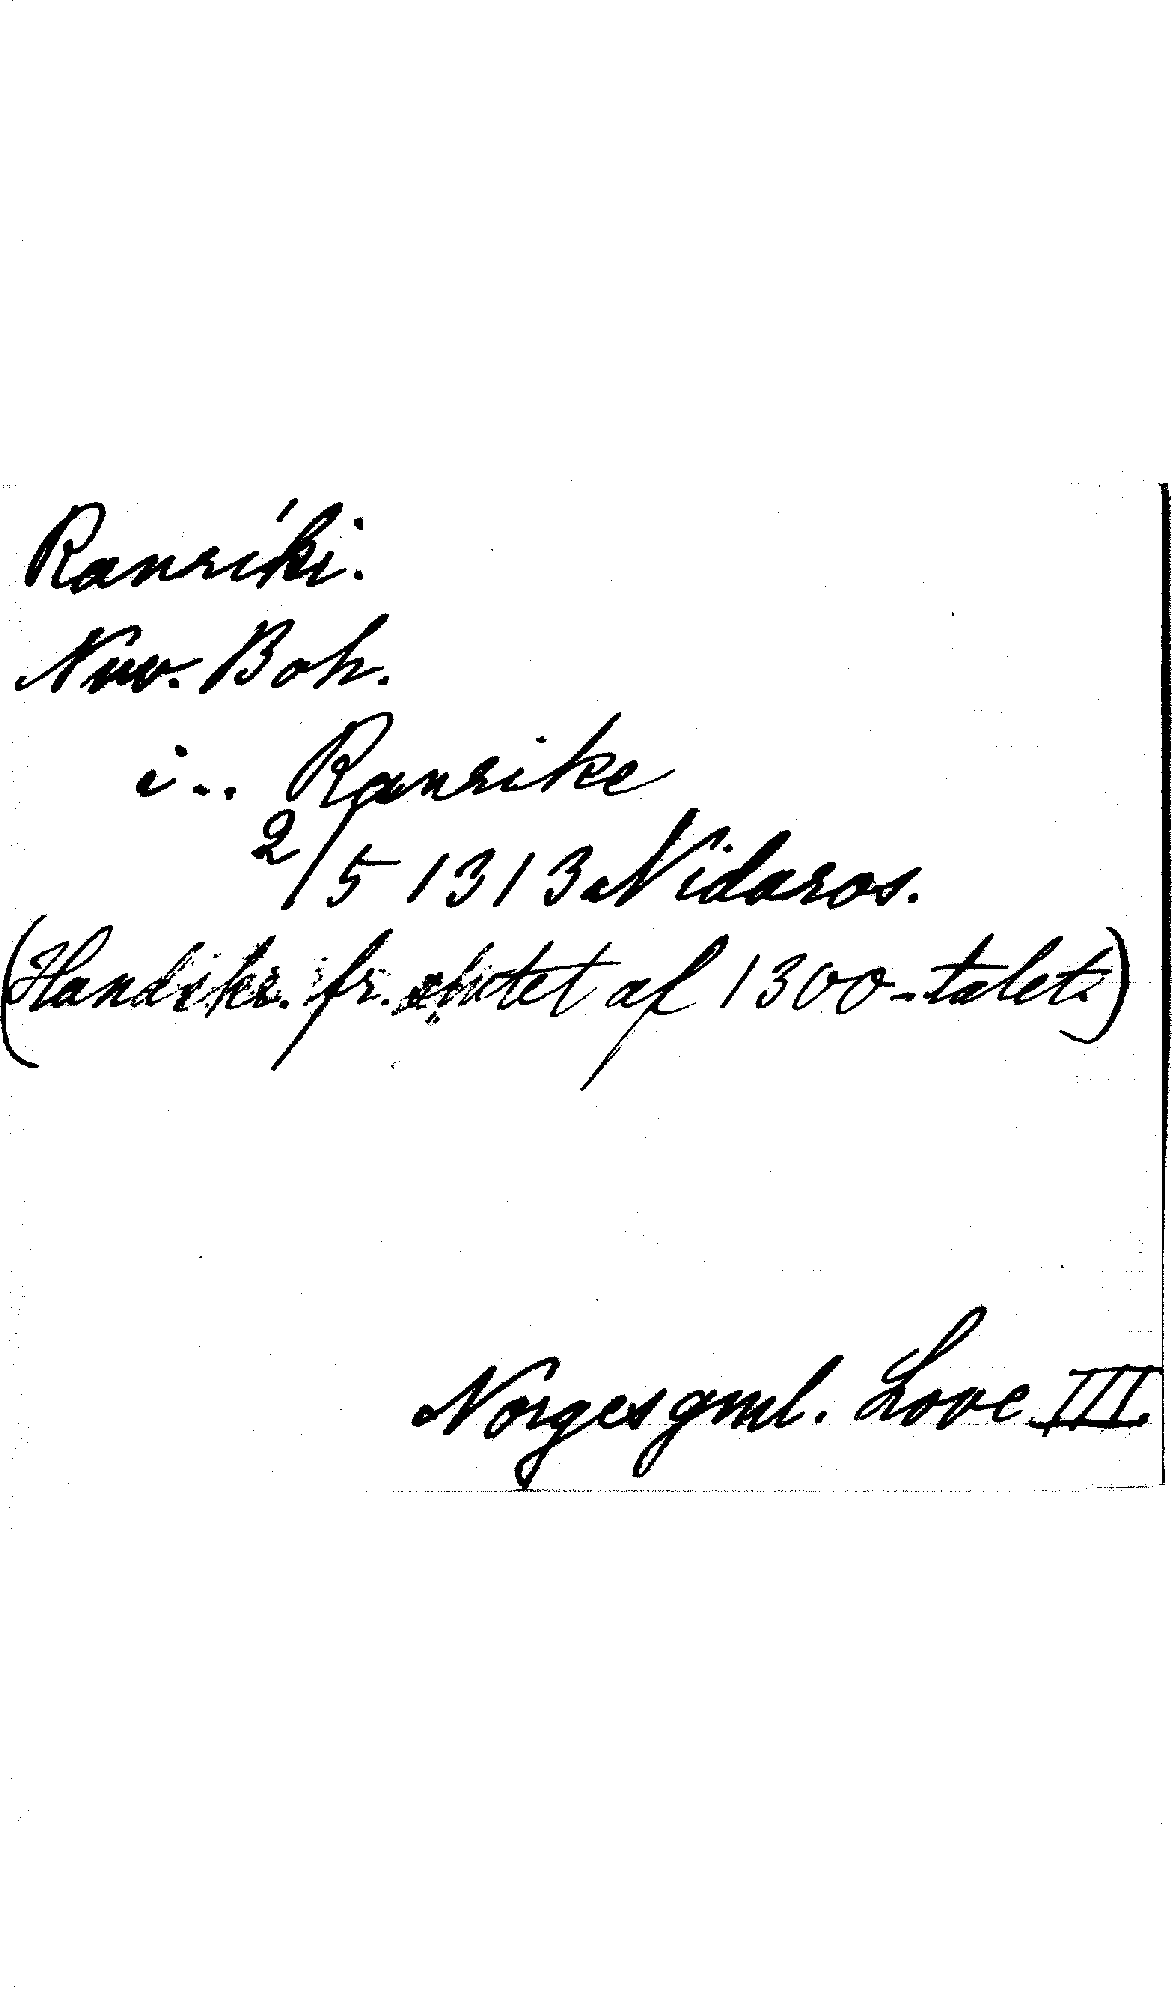 Ranríki.
Nuv. Boh.
i.. Ranrike
2/5 1313 Nidaros.
(Handskr. fr. slutet af 1300-talet.)
Norges gml. Love III.